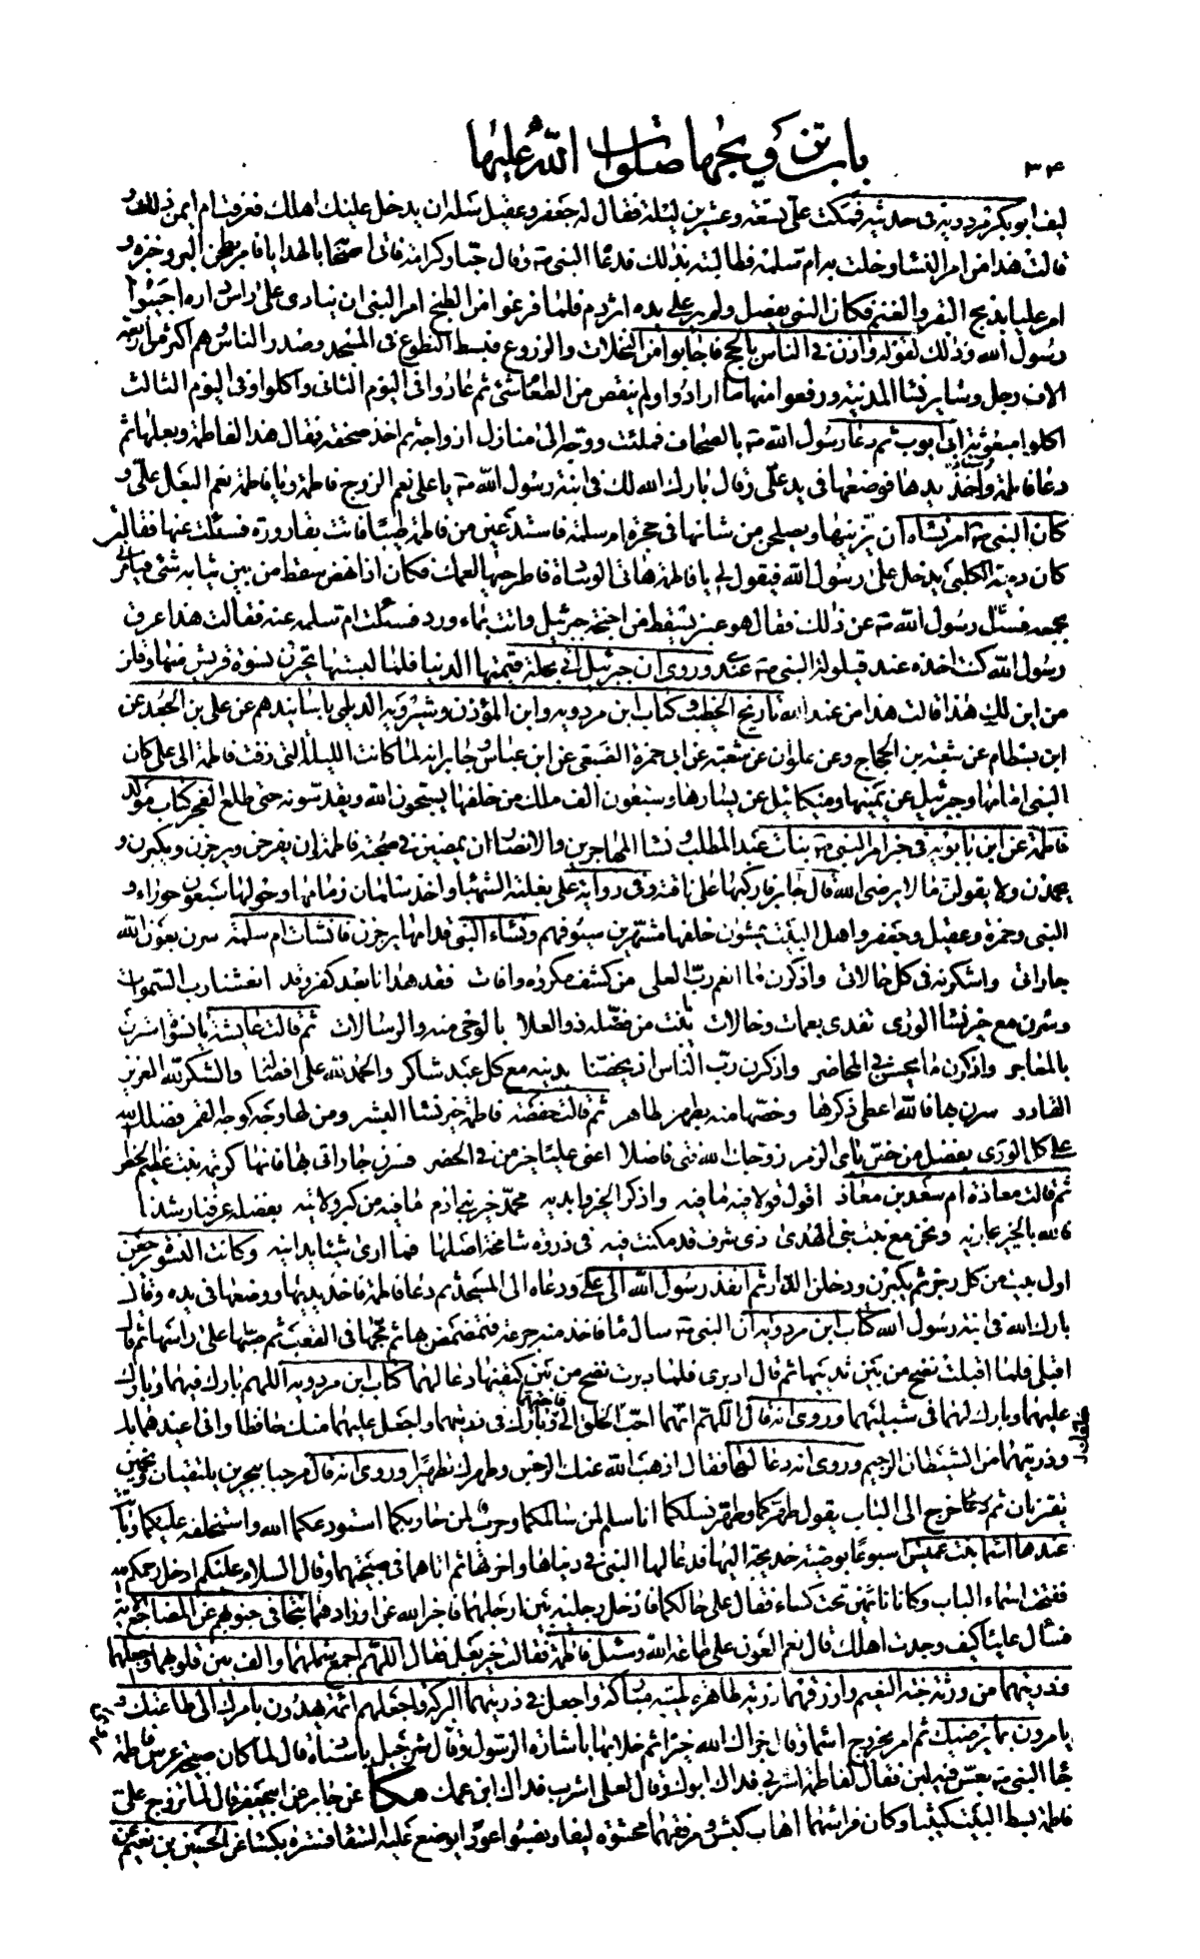 باب تزويجها صلوات الله عليها
٣٤
ليف ابو بكر مردويه فى حديثه فمكث علىّ تسعة وعشرين ليلة فقال له جعفر وعقيل سله ان يدخل عليك اهلك فعرفت ام ايمن ذلك و
قالت هذا من امر النساء وخلت به ام سلمة فطالبته بذلك فدعا النبى ص وقال حبا وكرامة فاتى اصحابه بالهدايا فامر بطحن البر وخبزه و
امر عليا بذبح البقر والغنم فكان النبى يفصل ولم ير على يده اثر دم فلما فرغوا من الطبخ امر النبى ان ينادى على راس داره اجيبوا
رسول الله وذلك كقوله واذن فى الناس بالحج فاجابوا من النخلات والزروع فبسط النطوع فى المسجد وصدر الناس وهم اكثر من اربعة
الاف رجل وسائر نساء المدينة ورفعوا منها ما ارادوا ولم ينقص من الطعام شئ ثم عادوا فى اليوم الثانى واكلوا وفى اليوم الثالث
اكلوا مبعوثة ابى ايوب ثم دعا رسول الله ص بالصحاف فملئت ووجه الى منازل ازواجه ثم اخذ صحفة فقال هذا لفاطمة وبعلها ثم
دعا فاطمة واخذ يدها فوضعها فى يد على وقال بارك الله لك فى ابنة رسول الله ص يا على نعم الزوج فاطمة ويا فاطمة نعم البعل على و
كان النبى ص امر نساءه ان يزينها ويصلحن من شانها فى حجرة ام سلمة فاستدعين من فاطمة طيبا فاتت بقارورة فسئلت عنها فقالت
كان دحية الكلبى يدخل على رسول الله فيقول لى يا فاطمة هاتى الوسادة فاطرحيها لعمك فكان اذا نهض سقط من بين ثيابه شئ فيامرنى
بجمعه فسئل رسول الله ص عن ذلك فقال هو عنبر يسقط من اجنحة جبرئيل واتت بماء ورد فسئلت ام سلمة عنه فقالت هذا عرق
رسول الله كنت اخذه عند قيلولة النبى ص عندى وروى ان جبرئيل اتى بحلة قيمتها الدنيا فلما لبستها تحيرن نسوة قريش منها وقلن
من اين لك هذا قالت هذا من عند الله تاريخ الخطيب وكتاب ابن مردويه وابن المؤذن وشيرويه الديلمى باسانيدهم عن على بن الجعد عن
ابن بسطام عن شعبة بن الحجاج وعن علوان عن شعبة عن ابى حمزة الضبعى عن ابن عباس وجابر انه لما كانت الليلة التى زفت فاطمة الى على كان
النبى امامها وجبرئيل عن يمينها وميكائيل عن يسارها وسبعون الف ملك من خلفها يسبحون الله ويقدسونه حتى طلع الفجر كتاب مولد
فاطمة عن ابن بابويه فى خبر امر النبى ص بنات عبد المطلب ونساء المهاجرين والانصار ان يمضين فى صحبة فاطمة وان يفرحن ويرجزن ويكبرن و
يحمدن ولا يقولن ما لا يرضى الله قال جابر فاركبها على ناقته وفى رواية على بغلته الشهباء واخذ سلمان زمامها وحولها سبعون حوراء و
النبى وحمزة وعقيل وجعفر واهل البيت يمشون خلفها مشهرين سيوفهم ونساء النبى قدامها يرجزن فانشات ام سلمة سرن بعون الله
جاراتى واشكرنه فى كل حالات واذكرن ما انعم رب العلى من كشف مكروه وافات فقد هدانا بعد كفر وقد انعشنا رب السموات
وسرن مع خير نساء الورى تفدى بعمات وخالات يا بنت من فضله ذو العلا بالوحى منه والرسالات ثم قالت عايشة يا نسوة استرن
بالمعاجر واذكرن ما يحسن فى المحاضر واذكرن رب الناس اذ يخصنا بدينه مع كل عبد شاكر والحمد لله على افضاله والشكر لله العزيز
القادر سرن بها فالله اعطى ذكرها وخصها منه بطهر طاهر ثم قالت حفصة فاطمة خير نساء البشر ومن لها وجه كوجه القمر فضلك الله
على كل الورى بفضل من خص باى الزمر زوجك الله فتى فاضلا اعنى عليا خير من فى الحضر فسرن جاراتى بها فانها كريمة بنت عظيم الخطر
ثم قالت معاذة ام سعد بن معاذ اقول قولا فيه ما فيه واذكر الخير وابديه محمد خير بنى ادم ما فيه من كبر ولا تيه بفضله عرفنا رشدنا
فالله بالخير يجازيه ونحن مع بنت نبى الهدى ذى شرف قد مكنت فيه فى ذروة شامخة اصلها فما ارى شيئا يدانيه وكانت النسوة يرجعن
اول بيت من كل رجز ثم يكبرن ودخلن الدار ثم انفذ رسول الله الى على ودعاه الى المسجد ثم دعا فاطمة فاخذ يديها ووضعها فى يده وقال
بارك الله فى ابنة رسول الله كتاب ابن مردويه ان النبى ص سال ماء فاخذ منه جرعة فتمضمض بها ثم مجها فى القعب ثم صبها على راسها ثم قال
اقبلى فلما اقبلت نضح من بين ثدييها ثم قال ادبرى فلما ادبرت نضح من بين كتفيها ثم دعا لهما كتاب ابن مردويه اللهم بارك فيهما وبارك
عليهما وبارك لهما فى شبليهما وروى انه قال اللهم انهما احب الخلق الى فاحبهما وبارك فى ذريتهما واجعل عليهما منك حافظا وانى اعيذهما بك
وذريتهما من الشيطان الرجيم وروى انه دعا لها فقال اذهب الله عنك الرجس وطهرك تطهيرا وروى انه قال مرحبا ببحرين يلتقيان ونجمين
يقترنان ثم خرج الى الباب يقول طهركما وطهر نسلكما انا سلم لمن سالمكما وحرب لمن حاربكما استودعكما الله واستخلفه عليكما وبات
عندها اسما بنت عميس اسبوعا بوصية خديجة اليها فدعا لها النبى فى دنياها واخرتها ثم اتاهما فى صبيحتهما وقال السلام عليكم ادخل رحمكم الله
ففتحت اسماء الباب وكانا نائمين تحت كساء فقال على حالكما فادخل رجليه بين ارجلهما فاخبر الله عن اورادهما تتجافى جنوبهم عن المضاجع الاية
فسأل عليا كيف وجدت اهلك قال نعم العون على طاعة الله وسئل فاطمة فقالت خير بعل فقال اللهم اجمع شملهما والف بين قلوبهما واجعلهما
وذريتهما من ورثة جنة النعيم وارزقهما ذرية طاهرة طيبة مباركة واجعل فى ذريتهما البركة واجعلهم ائمة يهدون بامرك الى طاعتك و
يامرون بما يرضيك ثم امر بخروج اسما وقال جزاك الله خيرا ثم خلا بها باشارة الرسول وقال شرحبيل باسناده قال لما كان صبيحة عرس فاطمة
جاء النبى ص بعس فيه لبن فقال لفاطمة اشربى فداك ابوك وقال لعلى اشرب فداك ابن عمك عن جابر عن ابى جعفر قال لما تزوج على
فاطمة بسط البيت كثيبا وكان فراشهما اهاب كبش ومرفقهما محشوة ليفا ونصبوا عودا يوضع عليه السقا فستره بكساء عن الحسين بن نعيم عن